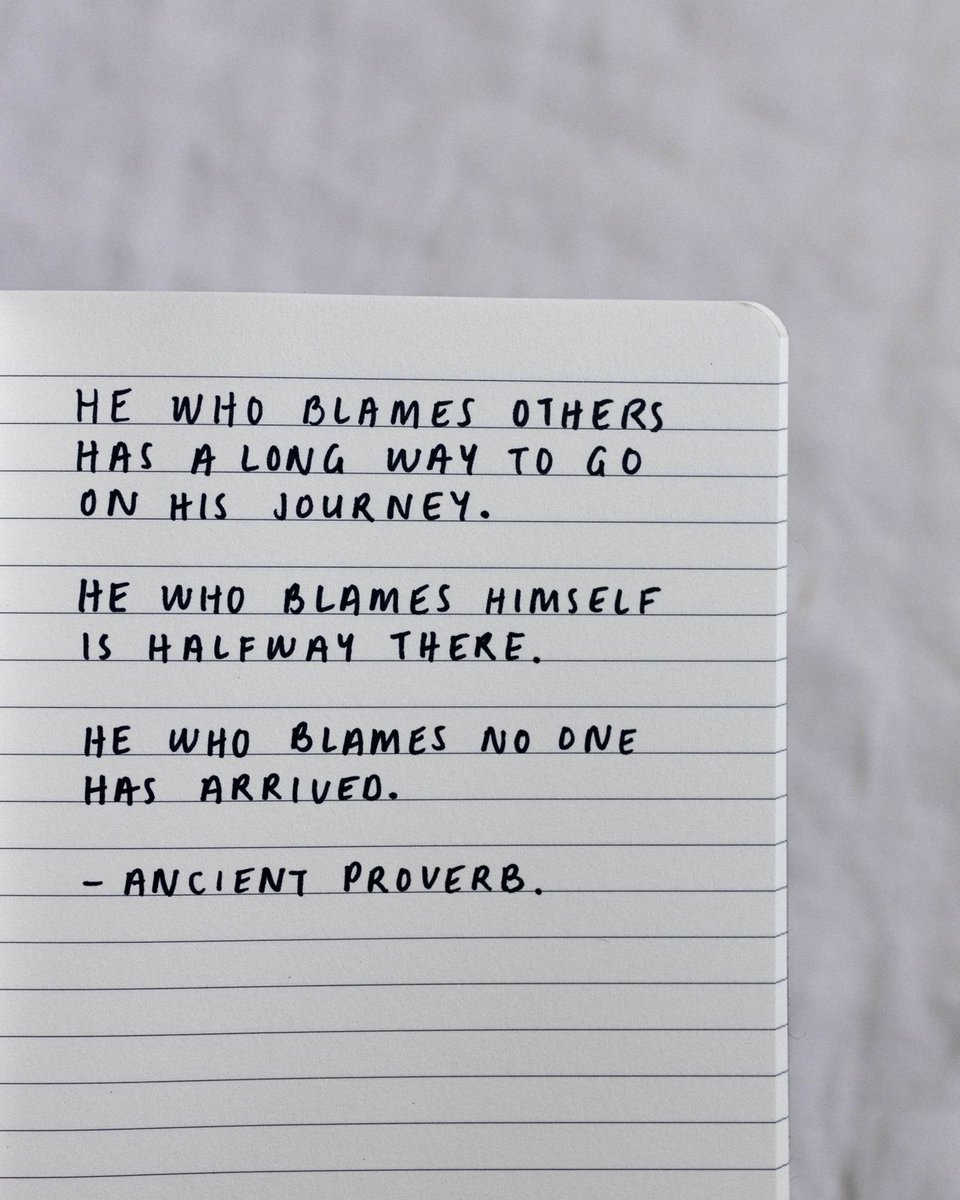 HE WHO BLAMES OTHERS
HAS A LONG WAY TO GO
ON HIS JOURNEY.
HE WHO BLAMES HIMSELF
IS HALFWAY THERE.
HE WHO BLAMES NO ONE
HAS ARRIVED.
- ANCIENT PROVERB.